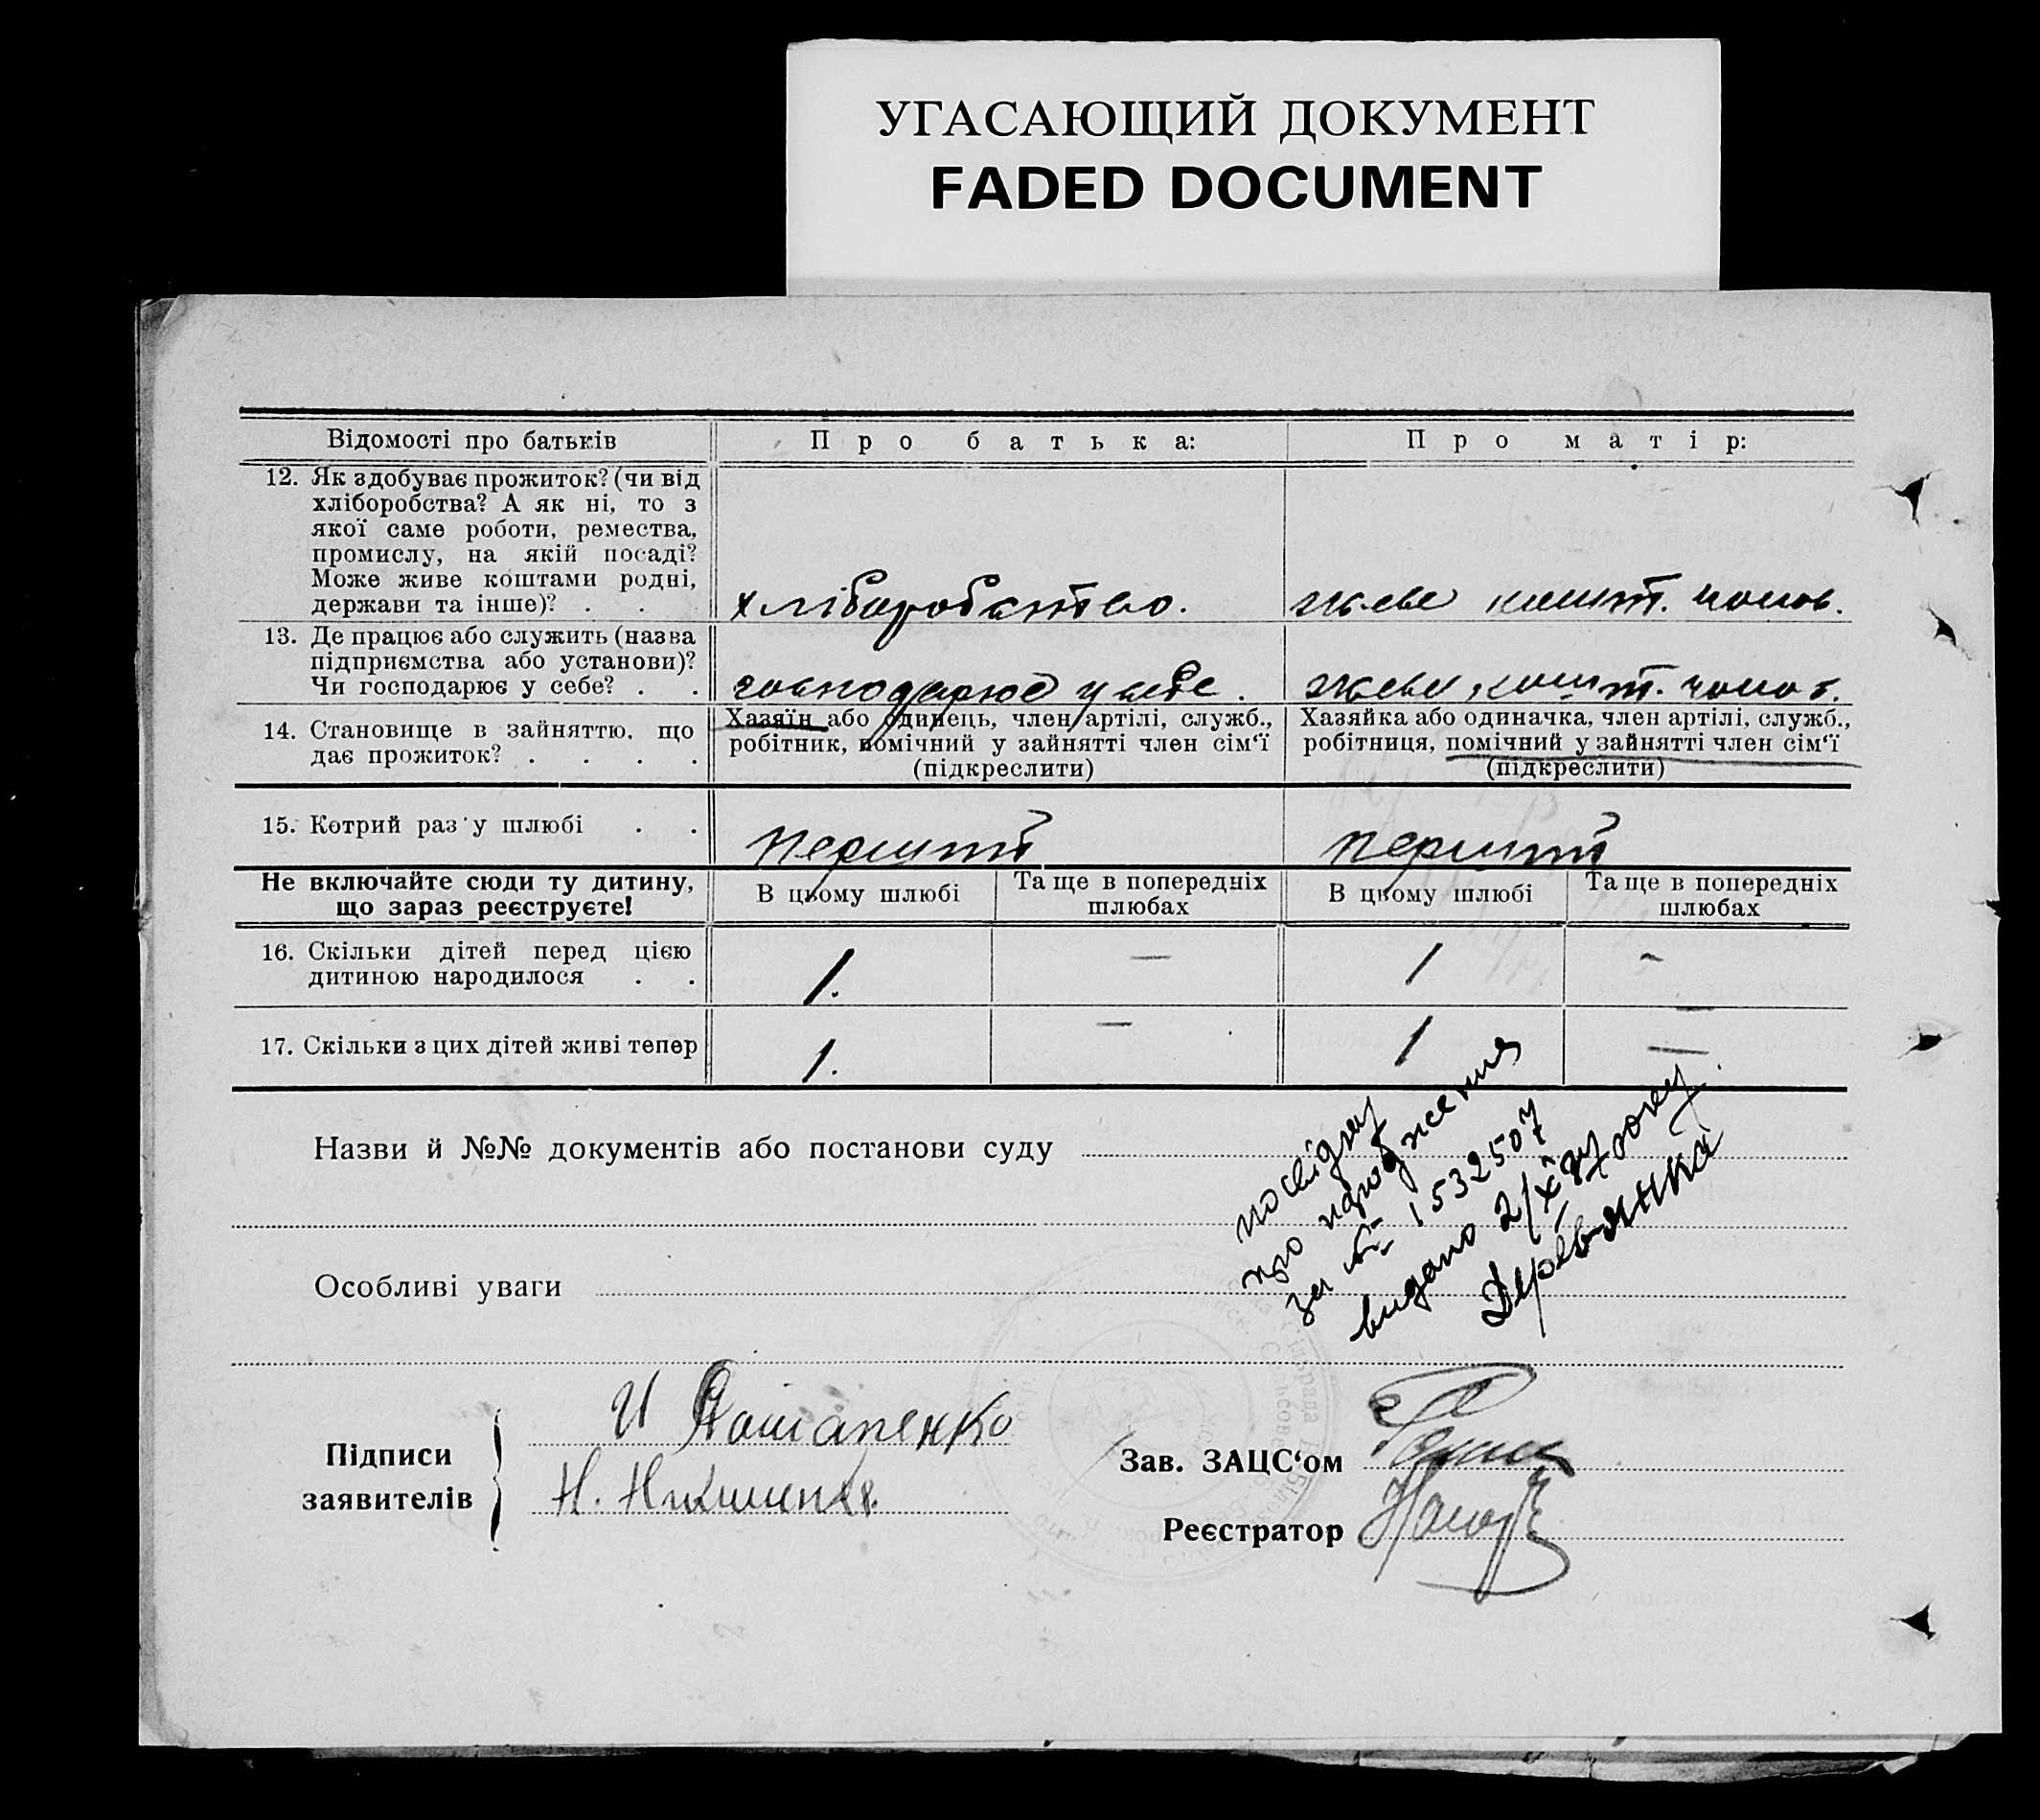 УГАСАЮЩИЙ ДОКУМЕНТ
FADED DOCUMENT
Відомості про батьків
Про батька:
Про матір:
12. Як здобуває прожиток? (чи від
хліборобства? А як ні, то з
якої саме роботи, ремества,
промислу, на якій посаді?
Може живе коштами родні,
держави та інше)? . .
хліборобство.
живе кошт. чолов.
13. Де працює або служить (назва
підприємства або установи)?
Чи господарює у себе? . .
господарює у себе.
живе кошт. чолов.
14. Становище в зайняттю, що
дає прожиток? . . . .
Хазяїн або одинець, член артілі, служб.,
робітник, помічний у зайнятті член сім‘ї
(підкреслити)
Хазяйка або одиначка, член артілі, служб.,
робітниця, помічний у зайнятті член сім‘ї
(підкреслити)
15. Котрий раз у шлюбі . .
перший
перший
Не включайте сюди ту дитину,
що зараз реєструєте!
В цьому шлюбі
Та ще в попередніх
шлюбах
В цьому шлюбі
Та ще в попередніх
шлюбах
16. Скільки дітей перед цією
дитиною народилося . .
1.
—
1
-
17. Скільки з цих дітей живі тепер
1.
—
1
—
Назви й №№ документів або постанови суду
посвідку
про народження
за № 1532507
видано 2/XI
року
Дерев'янка
Особливі уваги
Підписи
заявителів
И
Н.
Зав. ЗАЦС‘ом
Реєстратор